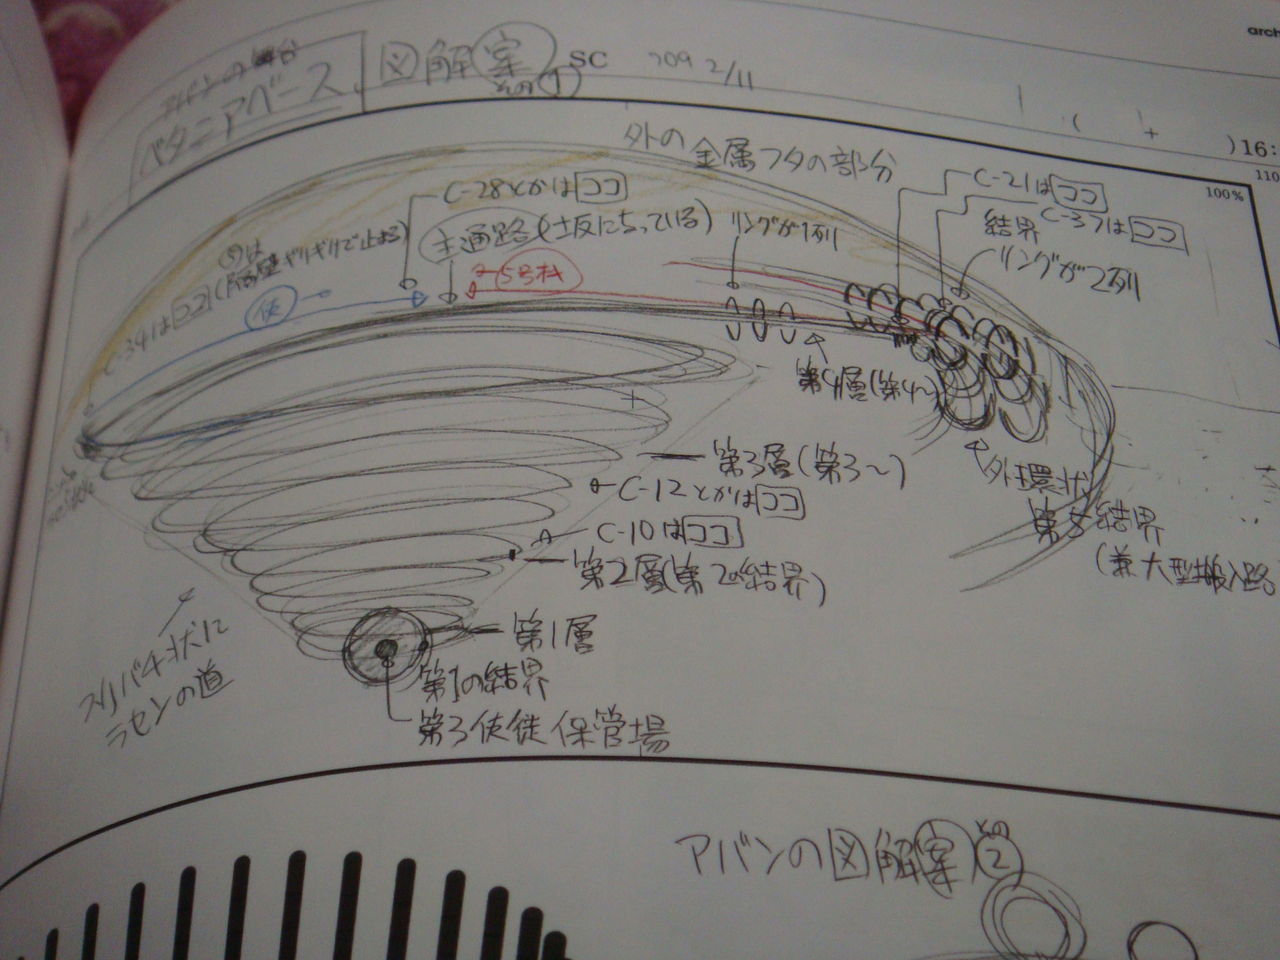 arch
アバンの舞台
ベタニアベース
図解案
その①
SC
'09 2/11
( + )16:
110
100%
外の金属フタの部分
C-28とかはココ
C-21はココ
C-37はココ
主通路(土坂になっている)
リングが1列
結界
リングが2列
5号機
使
C-34はココ(隔壁ギリギリで止まる)
第4層(第4〜)
第3層(第3〜)
C-12とかはココ
C-10はココ
第2層(第2の結界)
外環状
第5結界
(兼大型搬入路
第1層
第1の結界
第3使徒保管場
スリバチ状に
ラセンの道
アバンの図解案その②